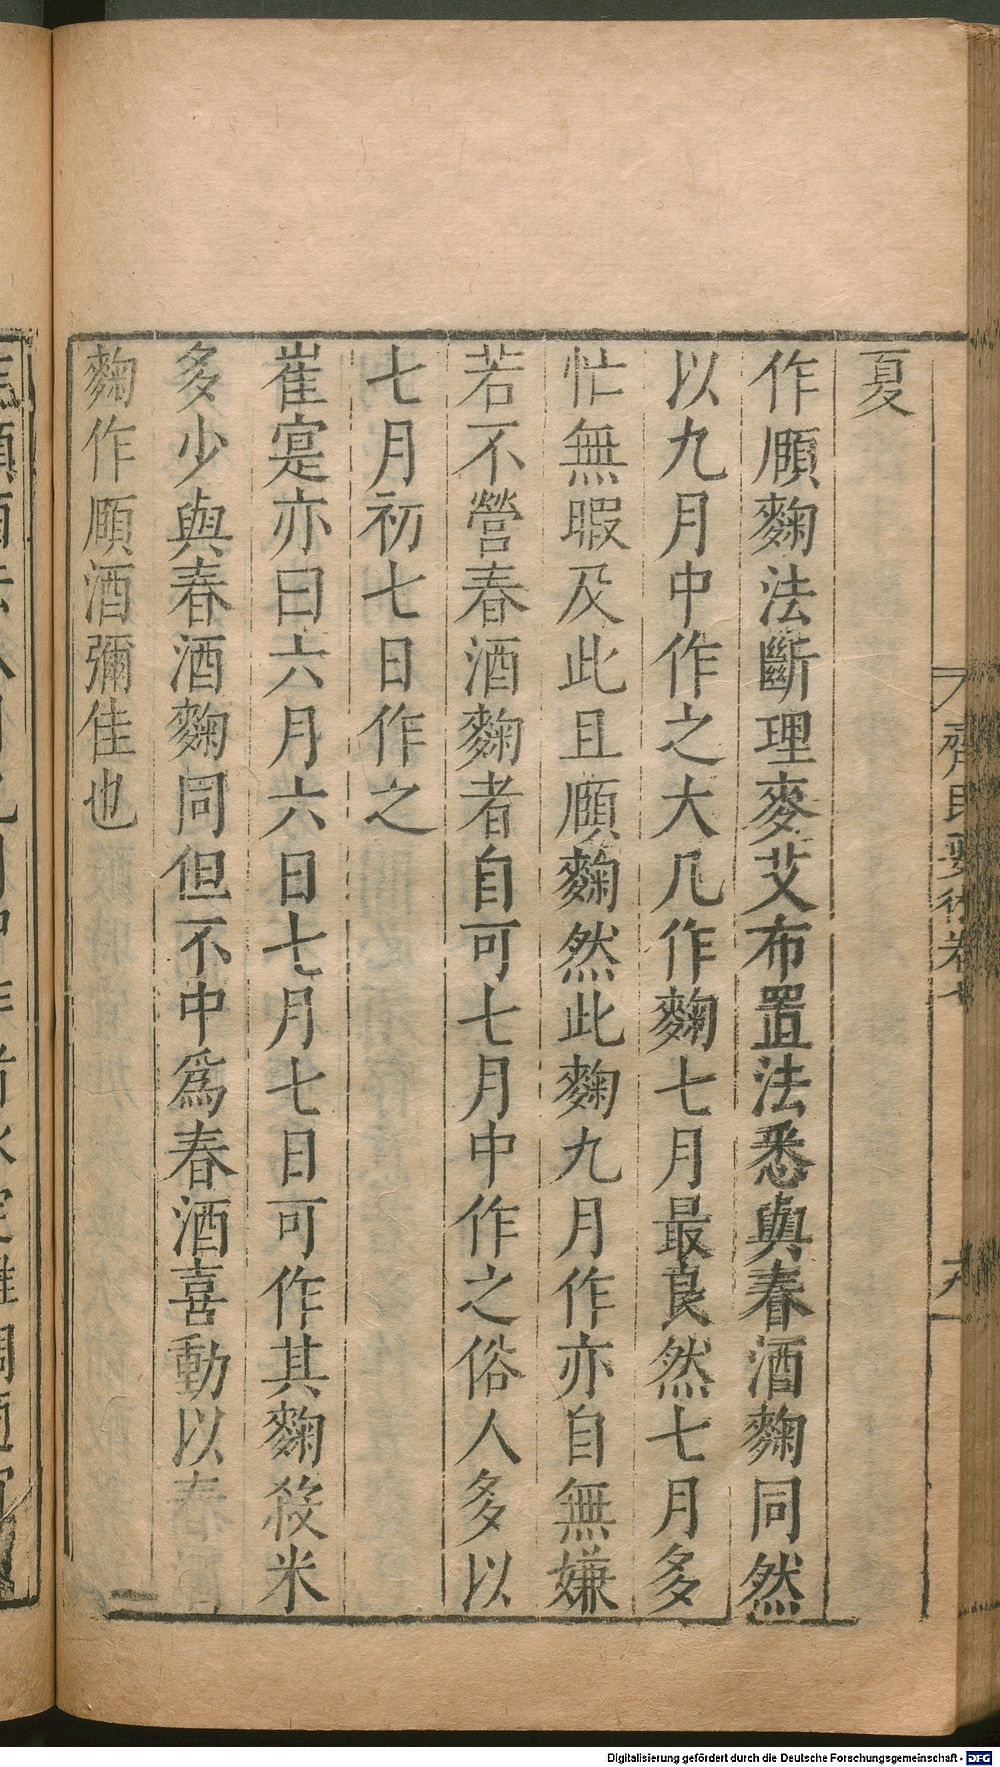 夏
作頤麴法斷理麥艾布置法悉與春酒麴同然
以九月中作之大凡作麴七月最良然七月多
忙無暇及此且頤麴然此麴九月作亦自無嫌
若不營春酒麴者自可七月中作之俗人多以
七月初七日作之
崔寔亦曰六月六日七月七日可作其麴殺米
多少與春酒麴同但不中爲春酒喜動以春酒
麴作頤酒彌佳也
齊民要術卷七
Digitalisierung gefördert durch die Deutsche Forschungsgemeinschaft - DFG